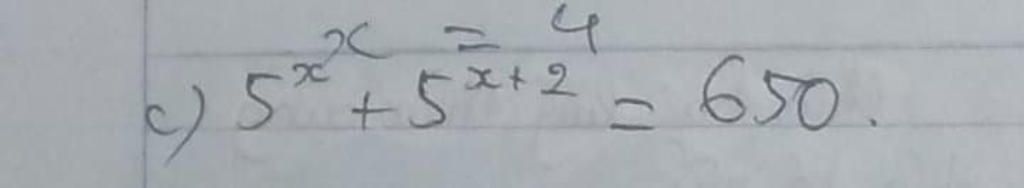 x = 4
c) 5^x + 5^{x+2} = 650.